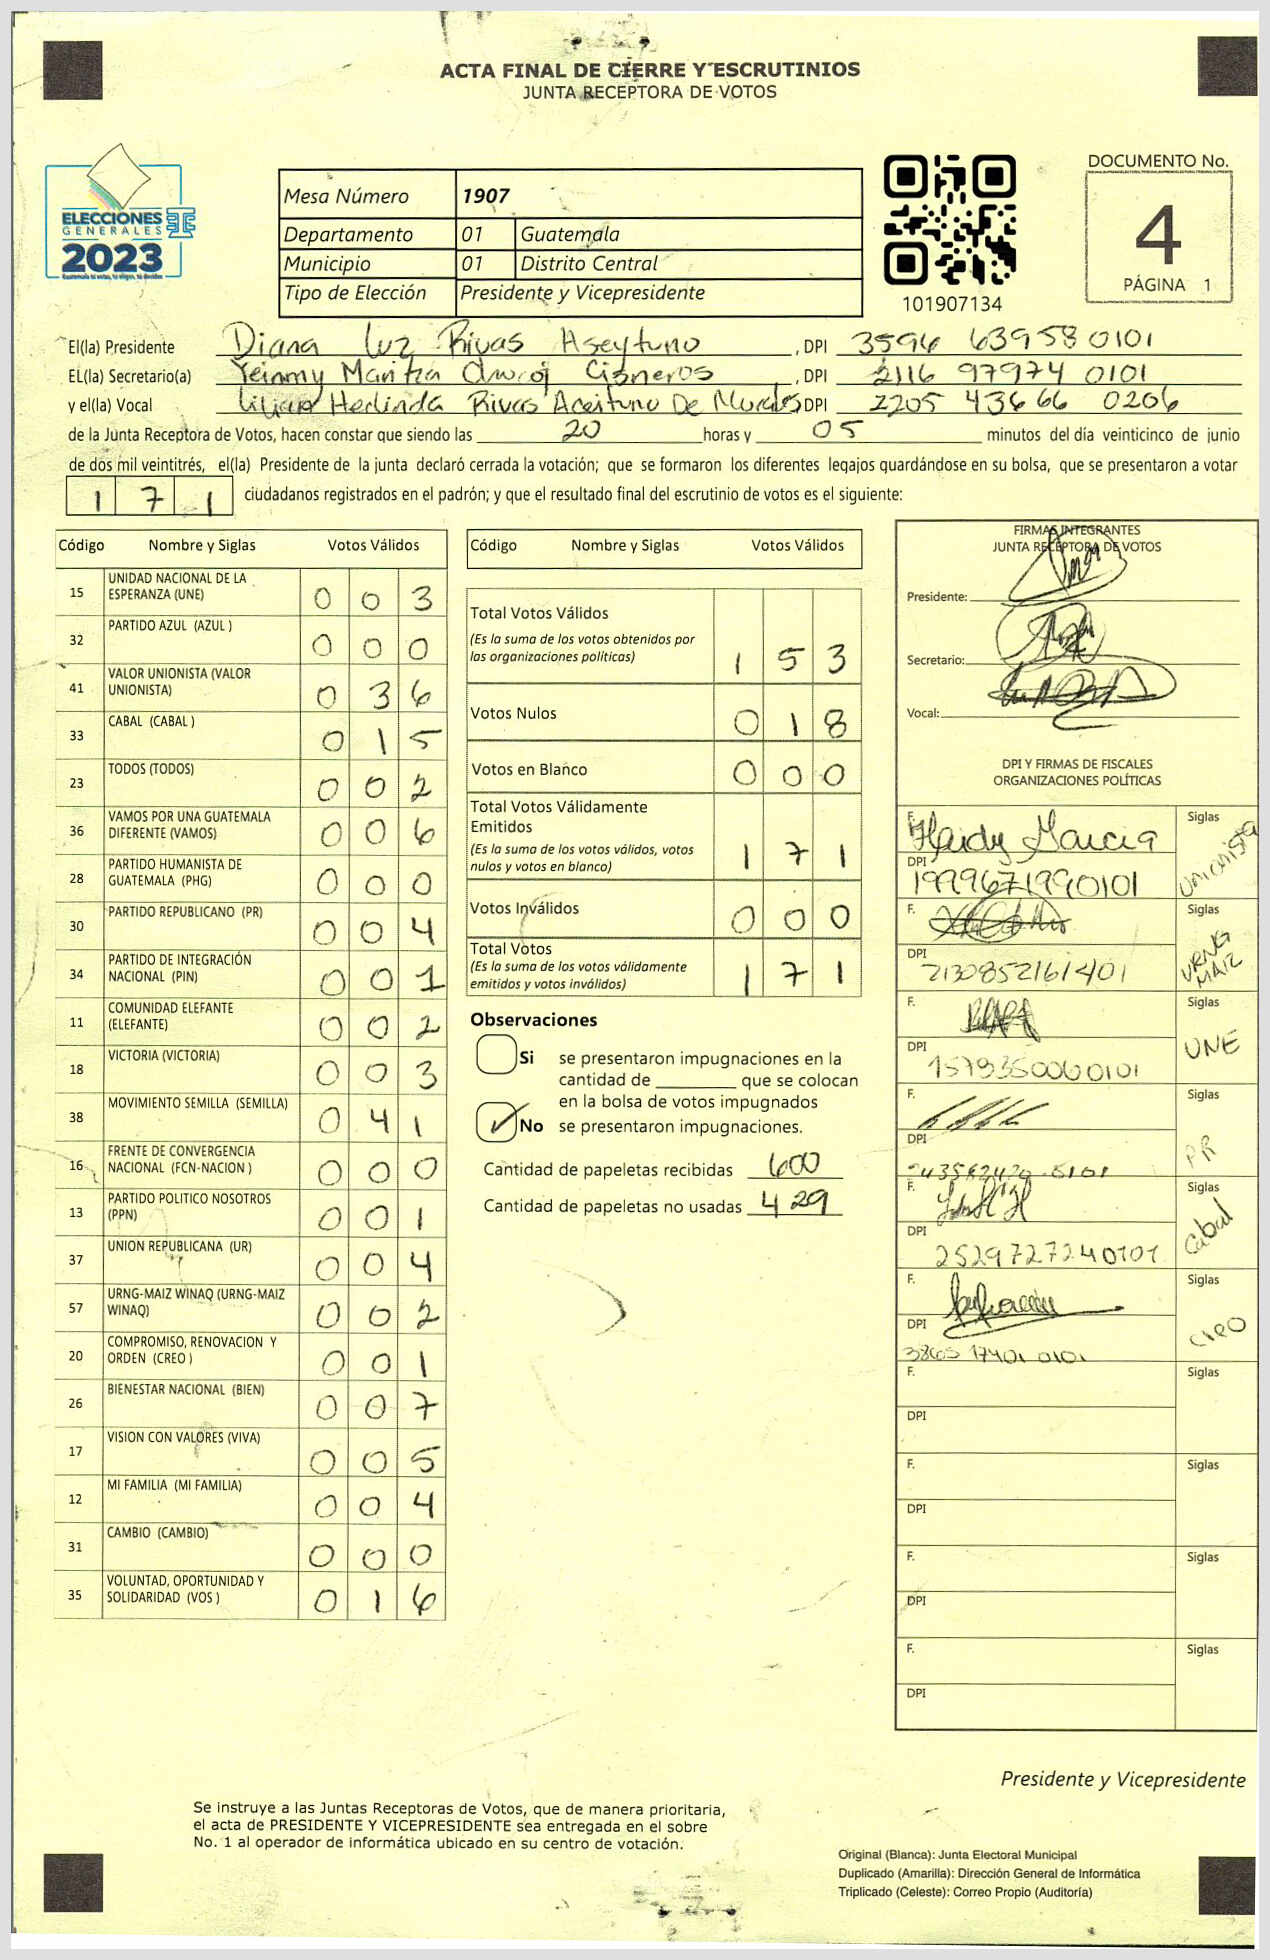 ACTA FINAL DE CIERRE Y ESCRUTINIOS
JUNTA RECEPTORA DE VOTOS
ELECCIONES
GENERALES
2023
Mesa Número 1907
Departamento 01 Guatemala
Municipio 01 Distrito Central
Tipo de Elección Presidente y Vicepresidente
101907134
DOCUMENTO No.
4
PÁGINA 1
El(la) Presidente Diana Luz Rivas Aseytuno, DPI 3594 63958 0101
EL(la) Secretario(a) Yeimmy Maritza Cisneros, DPI 2116 97974 0101
y el(la) Vocal Lilian Herlinda Rivas Aceituno De Morales DPI 2205 43666 0206
de la Junta Receptora de Votos, hacen constar que siendo las 20 horas y 05 minutos del día veinticinco de junio
de dos mil veintitrés, el(la) Presidente de la junta declaró cerrada la votación; que se formaron los diferentes legajos guardándose en su bolsa, que se presentaron a votar
171 ciudadanos registrados en el padrón; y que el resultado final del escrutinio de votos es el siguiente:
Código Nombre y Siglas Votos Válidos
15 UNIDAD NACIONAL DE LA ESPERANZA (UNE) 003
32 PARTIDO AZUL (AZUL ) 000
41 VALOR UNIONISTA (VALOR UNIONISTA) 036
33 CABAL (CABAL ) 015
23 TODOS (TODOS) 002
36 VAMOS POR UNA GUATEMALA DIFERENTE (VAMOS) 006
28 PARTIDO HUMANISTA DE GUATEMALA (PHG) 000
30 PARTIDO REPUBLICANO (PR) 004
34 PARTIDO DE INTEGRACIÓN NACIONAL (PIN) 001
11 COMUNIDAD ELEFANTE (ELEFANTE) 002
18 VICTORIA (VICTORIA) 003
38 MOVIMIENTO SEMILLA (SEMILLA) 041
16 FRENTE DE CONVERGENCIA NACIONAL (FCN-NACION ) 000
13 PARTIDO POLITICO NOSOTROS (PPN) 001
37 UNION REPUBLICANA (UR) 004
57 URNG-MAIZ WINAQ (URNG-MAIZ WINAQ) 002
20 COMPROMISO, RENOVACION Y ORDEN (CREO ) 001
26 BIENESTAR NACIONAL (BIEN) 007
17 VISION CON VALORES (VIVA) 005
12 MI FAMILIA (MI FAMILIA) 004
31 CAMBIO (CAMBIO) 000
35 VOLUNTAD, OPORTUNIDAD Y SOLIDARIDAD (VOS ) 016
Código Nombre y Siglas Votos Válidos
Total Votos Válidos
(Es la suma de los votos obtenidos por las organizaciones políticas) 153
Votos Nulos 018
Votos en Blanco 000
Total Votos Válidamente Emitidos
(Es la suma de los votos válidos, votos nulos y votos en blanco) 171
Votos Inválidos 000
Total Votos
(Es la suma de los votos válidamente emitidos y votos inválidos) 171
Observaciones
Si se presentaron impugnaciones en la
cantidad de ________ que se colocan
en la bolsa de votos impugnados
✓ No se presentaron impugnaciones.
Cantidad de papeletas recibidas 600
Cantidad de papeletas no usadas 429
FIRMAS INTEGRANTES
JUNTA RECEPTORA DE VOTOS
Presidente:
Secretario:
Vocal:
DPI Y FIRMAS DE FISCALES
ORGANIZACIONES POLÍTICAS
F. Heidy Garcia Siglas Unionista
DPI 1999671990101
F. Siglas URNG MAIZ
DPI 2130852161401
F. Siglas UNE
DPI 1579350060101
F. Siglas PR
DPI
F. Siglas Cabal
DPI 2529727240101
F. Siglas Creo
DPI 3865 17401 0101
F. Siglas
DPI
F. Siglas
DPI
F. Siglas
DPI
F. Siglas
DPI
Presidente y Vicepresidente
Se instruye a las Juntas Receptoras de Votos, que de manera prioritaria,
el acta de PRESIDENTE Y VICEPRESIDENTE sea entregada en el sobre
No. 1 al operador de informática ubicado en su centro de votación.
Original (Blanca): Junta Electoral Municipal
Duplicado (Amarilla): Dirección General de Informática
Triplicado (Celeste): Correo Propio (Auditoría)